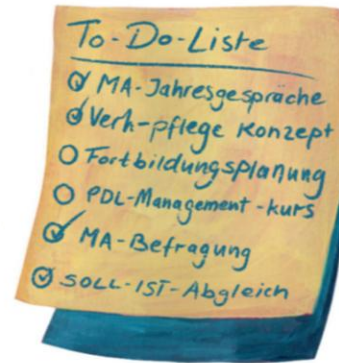 To-Do-Liste
MA-Jahresgespräche
Verh-pflege Konzept
Fortbildungsplanung
PDL-Management-kurs
MA-Befragung
SOLL-IST-Abgleich